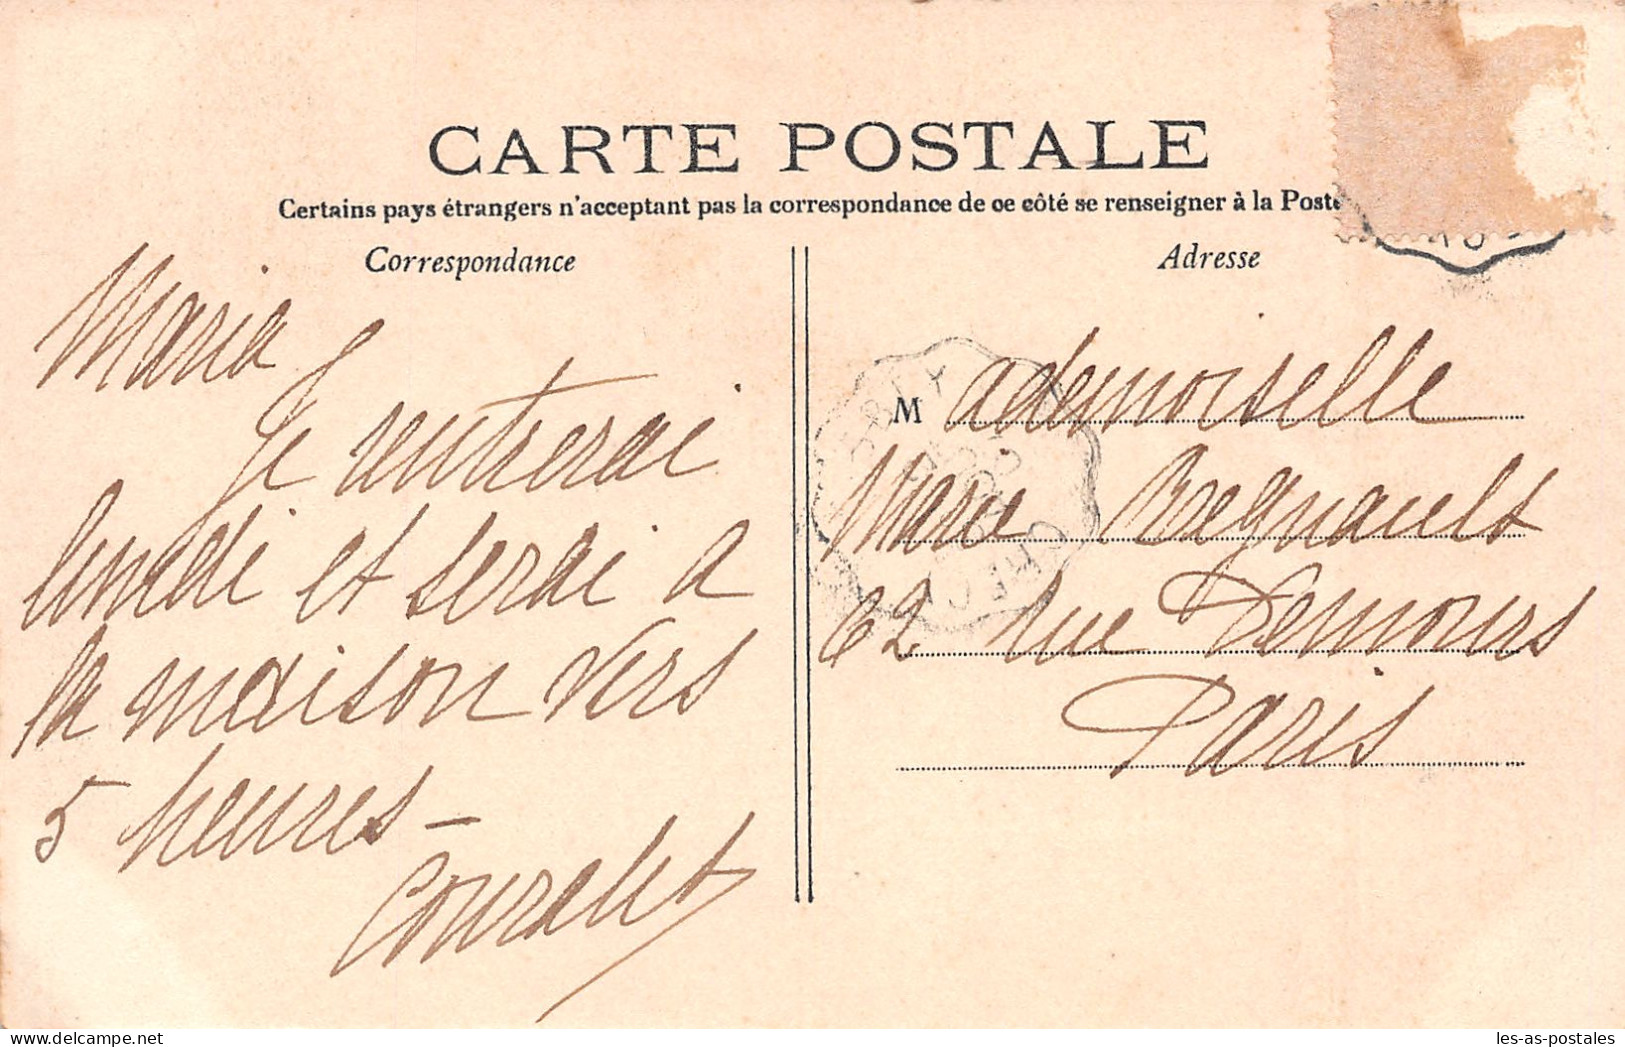 CARTE POSTALE
Certains pays étrangers n'acceptant pas la correspondance de ce côté se renseigner à la Poste
Correspondance
Maria
Je rentrerai
lundi et serai a
la maison vers
5 heures –
Adresse
Mademoiselle
Marie Regnault
62 rue Demours
Paris
les-as-postales